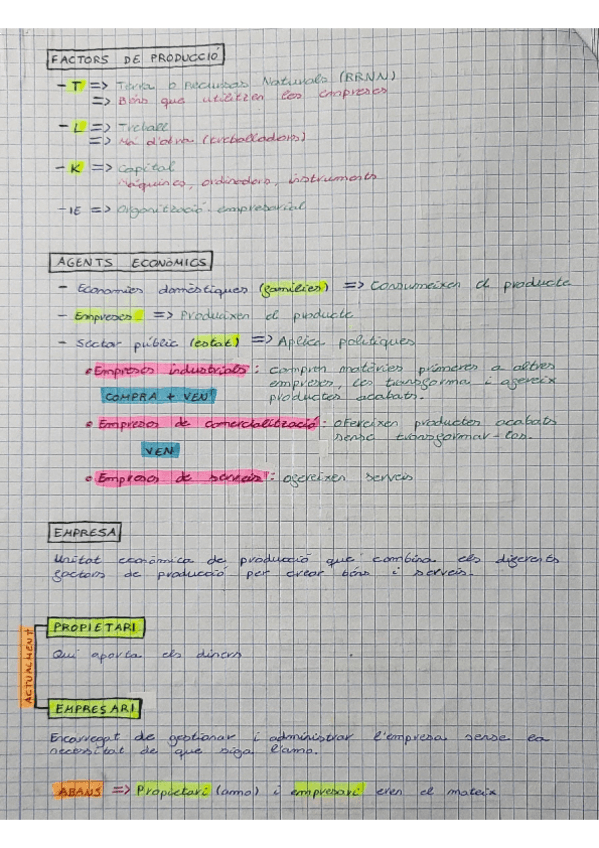 FACTORS DE PRODUCCIÓ
- T => Terra o Recursos Naturals (RRNN)
=> Béns que utilitzen les empreses
- L => Treball
=> Mà d'obra (treballadors)
- K => Capital
Màquines, ordinadors, instruments
- IE => Organització empresarial
AGENTS ECONÒMICS
- Economies domèstiques (famílies) => Consumeixen el producte
- Empreses => Produeixen el producte
- Sector públic (estat) => Aplica polítiques
• Empreses industrials: compren matèries primeres a altres
empreses, les transforma i ofereix
COMPRA + VEN productes acabats.
• Empreses de comercialització: ofereixen productes acabats
sense transformar-los.
VEN
• Empreses de serveis: ofereixen serveis
EMPRESA
Unitat econòmica de producció que combina els diferents
factors de producció per crear béns i serveis.
ACTUALMENT
PROPIETARI
Qui aporta els diners
EMPRESARI
Encarregat de gestionar i administrar l'empresa sense la
necessitat de que siga l'amo.
ABANS => Propietari (amo) i empresari eren el mateix